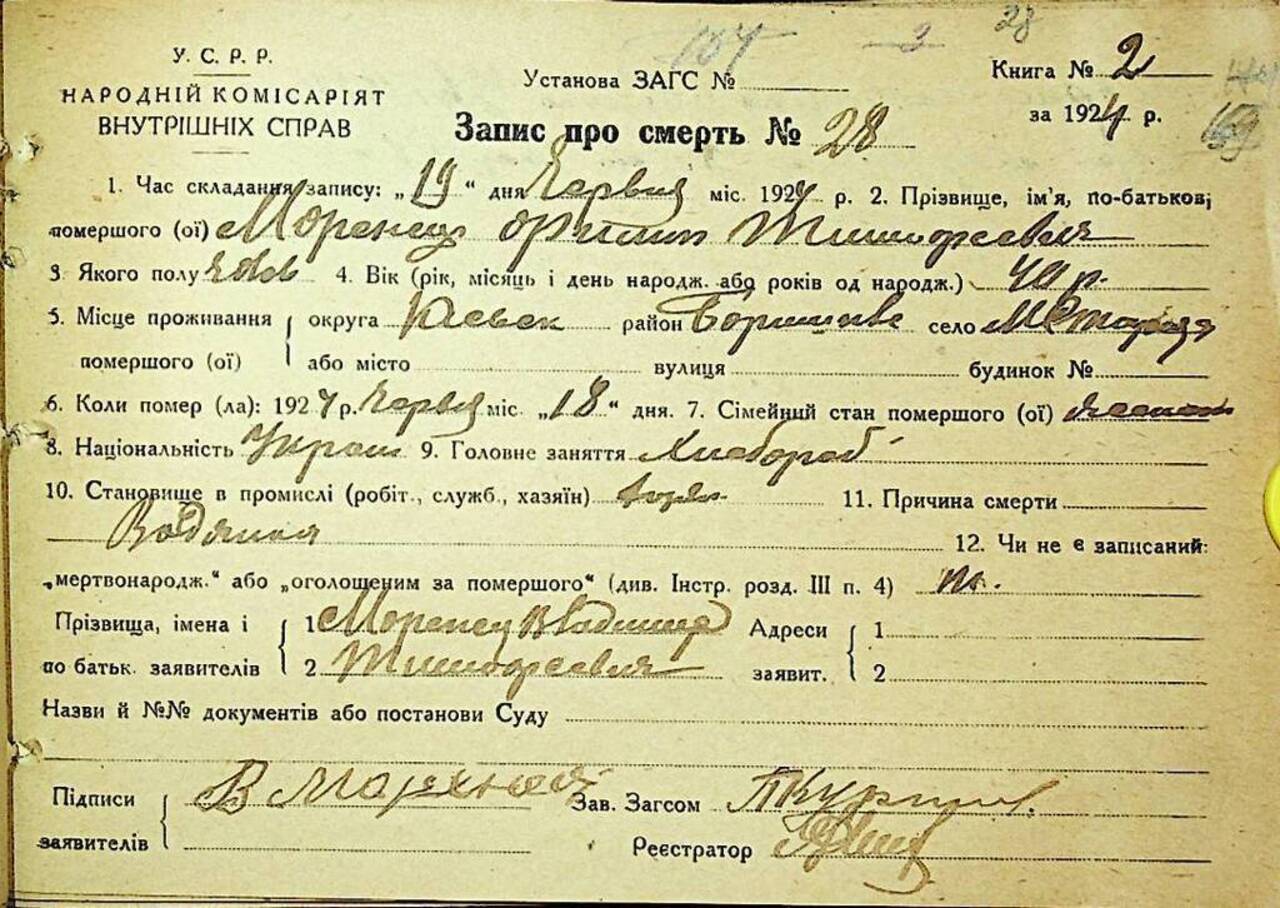 28
У. С. Р. Р.
НАРОДНІЙ КОМІСАРІЯТ
ВНУТРІШНІХ СПРАВ
Установа ЗАГС №
Книга № 2
за 1924 р.
Запис про смерть № 28
1. Час складання запису: „19“ дня Червня міс. 1924 р. 2. Прізвище, ім'я, по-батькові
помершого (ої) Моренец
3. Якого полу 4. Вік (рік, місяць і день народж. або років од народж.) 40 р.
5. Місце проживання округа Київск район село
помершого (ої) або місто вулиця будинок №
6. Коли помер (ла): 1924 р. Червня міс. „18“ дня. 7. Сімейний стан помершого (ої)
8. Національність Украін 9. Головне заняття Хлебороб
10. Становище в промислі (робіт., служб., хазяїн) 11. Причина смерти
Водянка
12. Чи не є записаний:
„мертвонародж.“ або „оголошеним за помершого“ (див. Інстр. розд. III п. 4)
Прізвища, імена і 1 Моренец Владимир Адреси 1
по батьк. заявителів 2 заявит. 2
Назви й №№ документів або постанови Суду
Підписи Зав. Загсом
заявителів Реєстратор